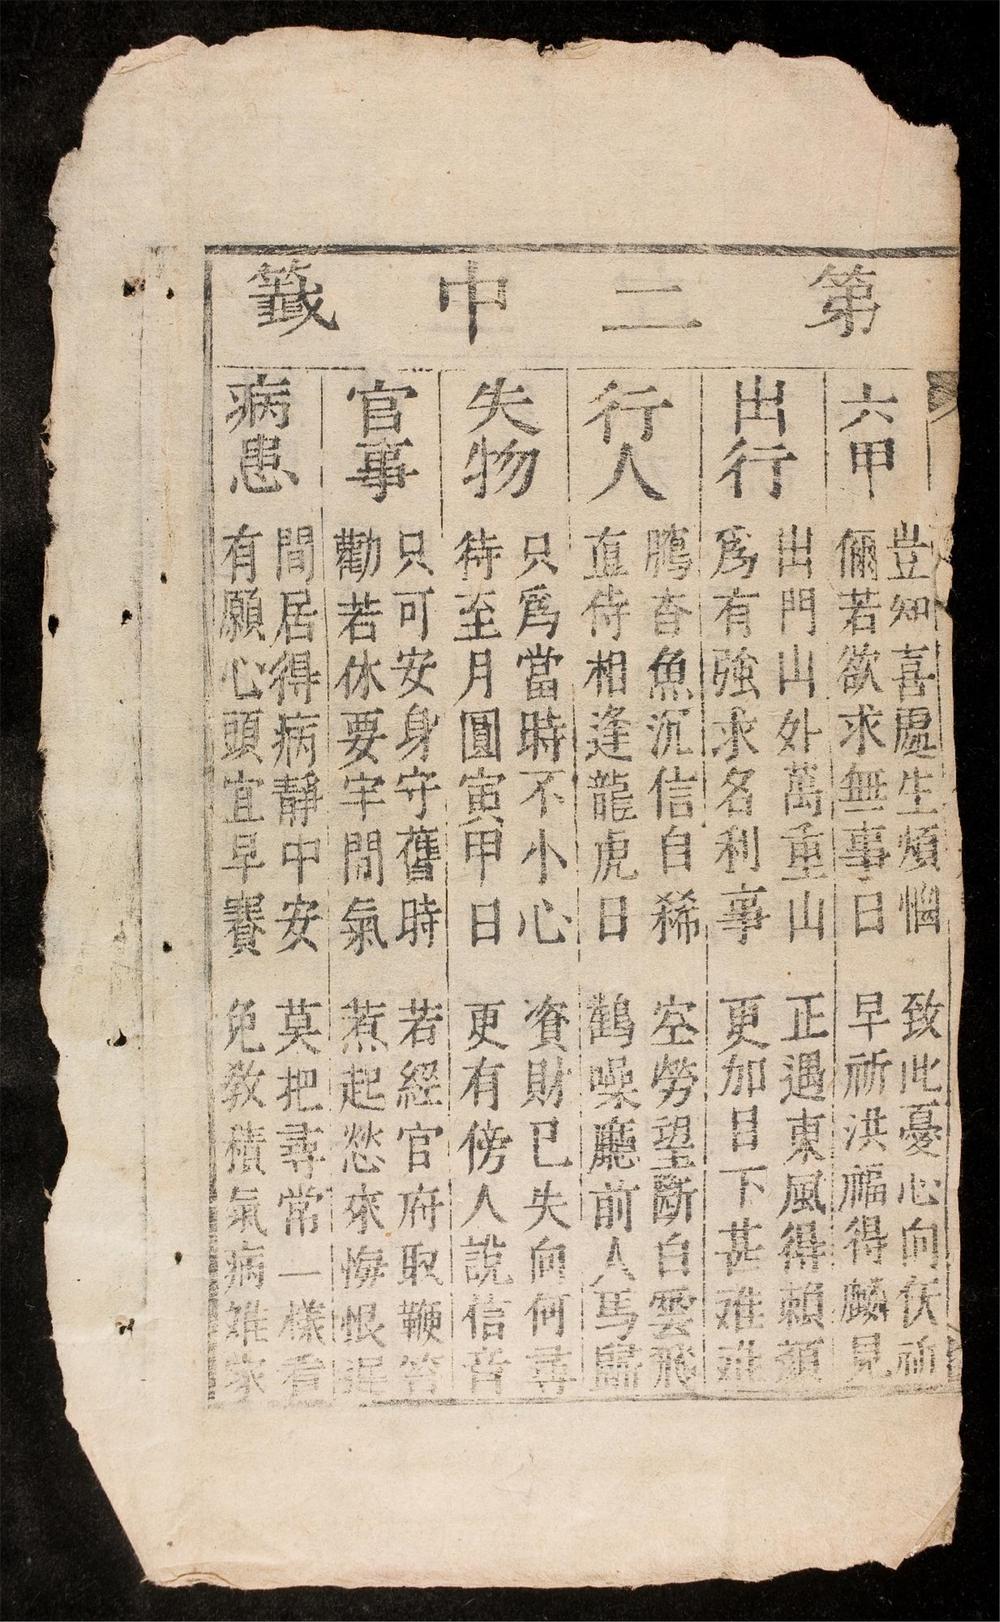 第二中籤
六甲
豈知喜處生煩惱 致此憂心向伏祈
倘若欲求無事日 早祈洪福得麟見
出行
出門山外萬重山 正遇東風得賴顏
為有強求名利事 更加目下甚难進
行人
鵬杳魚沉信自稀 空勞望斷白雲飛
直待相逢龍虎日 鵲噪廳前人馬歸
失物
只為當時不小心 資財已失向何尋
待至月圓寅甲日 更有傍人說信音
官事
只可安身守舊時 若經官府取鞭笞
勸若休要牢閒氣 惹起愁來悔恨遲
病患
間居得病靜中安 莫把尋常一樣看
有願心頭宜早賽 免教積氣病难